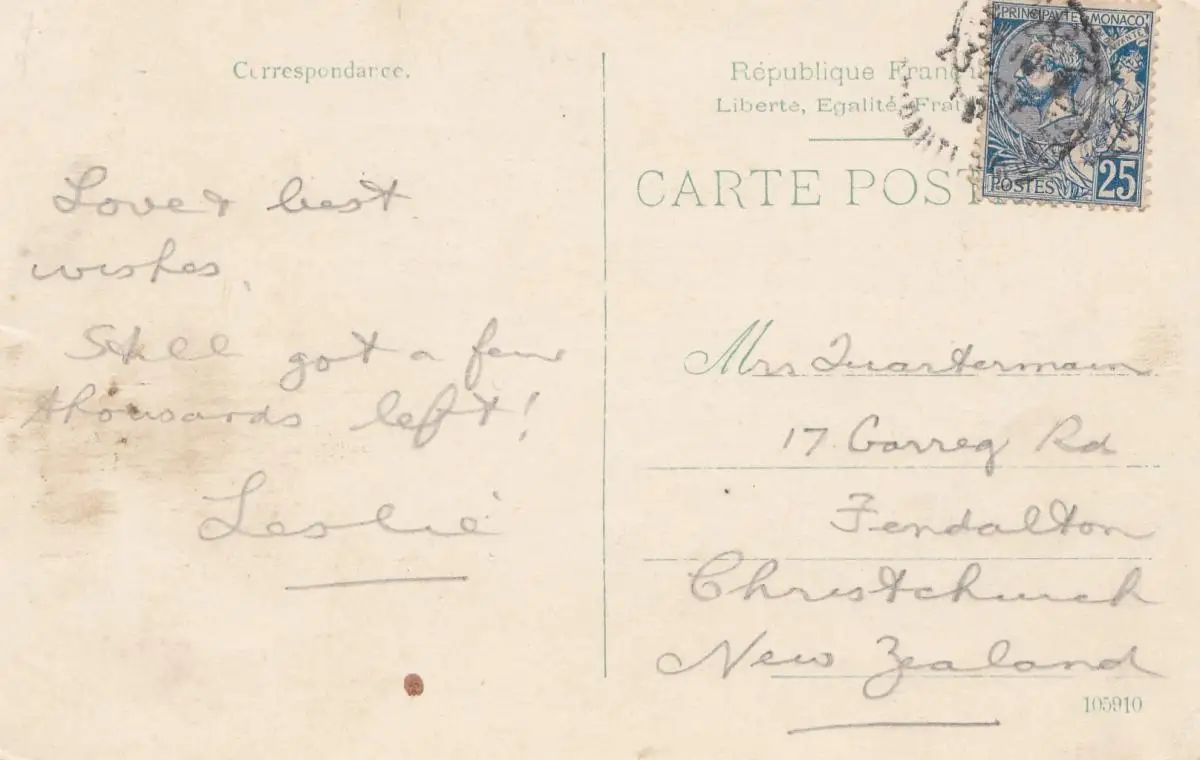 Correspondance.
Love & best
wishes.
Still got a few
thousands left!
Leslie
République
Liberté, Egalité,
CARTE
PRINCIPAUTE MONACO
POSTES 25
Mrs Quartermain
17 Garreg Rd
Fendalton
Christchurch
New Zealand
105910